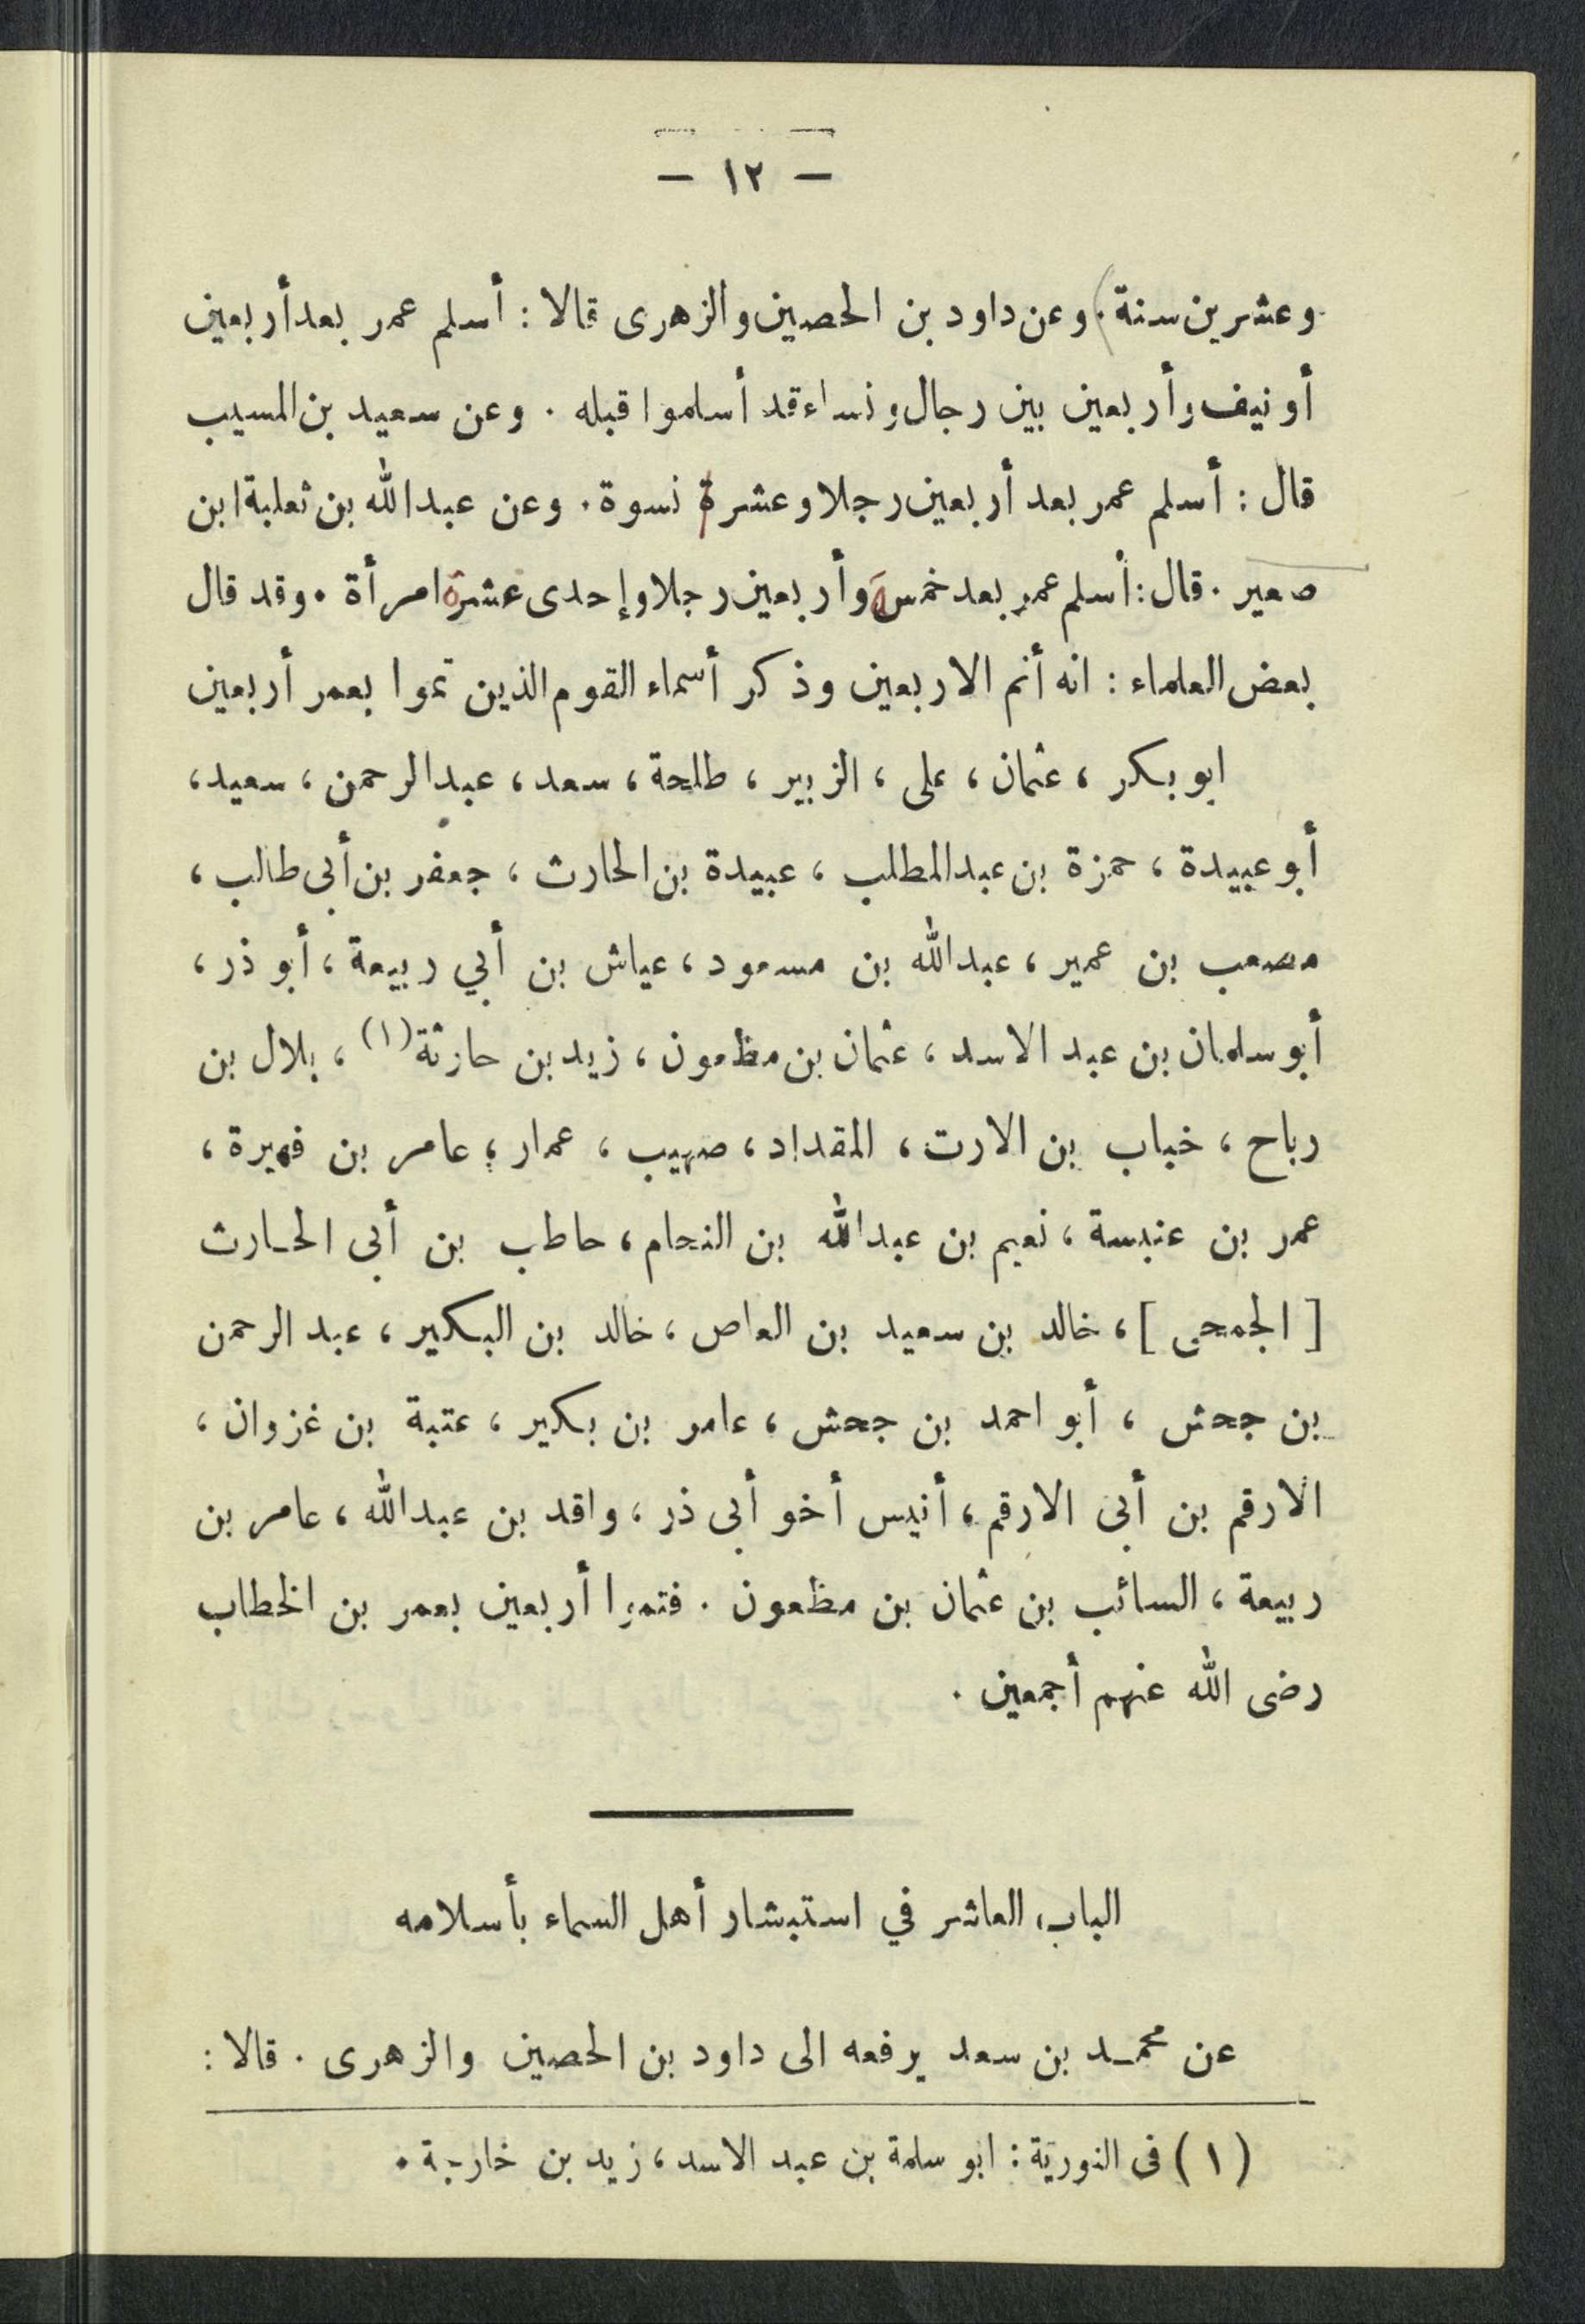 — ١٢ —
وعشرين سنة. وعن داود بن الحصين والزهرى قالا : أسلم عمر بعد أربعين
أو نيف وأربعين بين رجال ونساء قد أسلموا قبله . وعن سعيد بن المسيب
قال : أسلم عمر بعد أربعين رجلا وعشرة نسوة . وعن عبدالله بن ثعلبة ابن
صعير . قال : أسلم عمر بعد خمسة وأربعين رجلا وإحدى عشرة امرأة . وقد قال
بعض العلماء : انه أتم الاربعين وذكر أسماء القوم الذين تموا بعمر أربعين
ابو بكر ، عثمان ، على ، الزبير ، طلحة ، سعد ، عبدالرحمن ، سعيد ،
أبو عبيدة ، حمزة بن عبدالمطلب ، عبيدة بن الحارث ، جعفر بن أبى طالب ،
مصعب بن عمير ، عبدالله بن مسعود ، عياش بن أبي ربيعة ، أبو ذر ،
أبو سلمان بن عبد الاسد ، عثمان بن مظعون ، زيد بن حارثة (١) ، بلال بن
رباح ، خباب بن الارت ، المقداد ، صهيب ، عمار ، عامر بن فهيرة ،
عمر بن عنبسة ، نعيم بن عبدالله بن النحام ، حاطب بن أبى الحـارث
[ الجمحى ] ، خالد بن سعيد بن العاص ، خالد بن البكير ، عبد الرحمن
بن جحش ، أبو احمد بن جحش ، عامر بن بكير ، عتبة بن غزوان ،
الارقم بن أبى الارقم ، أنيس أخو أبى ذر ، واقد بن عبدالله ، عامر بن
ربيعة ، السائب بن عثمان بن مظعون . فتموا أربعين بعمر بن الخطاب
رضى الله عنهم أجمعين .
الباب العاشر في استبشار أهل السماء بأسلامه
عن محمـد بن سعد يرفعه الى داود بن الحصين والزهرى . قالا :
(١) فى النورية : ابو سلمة بن عبد الاسد ، زيد بن خارجة .